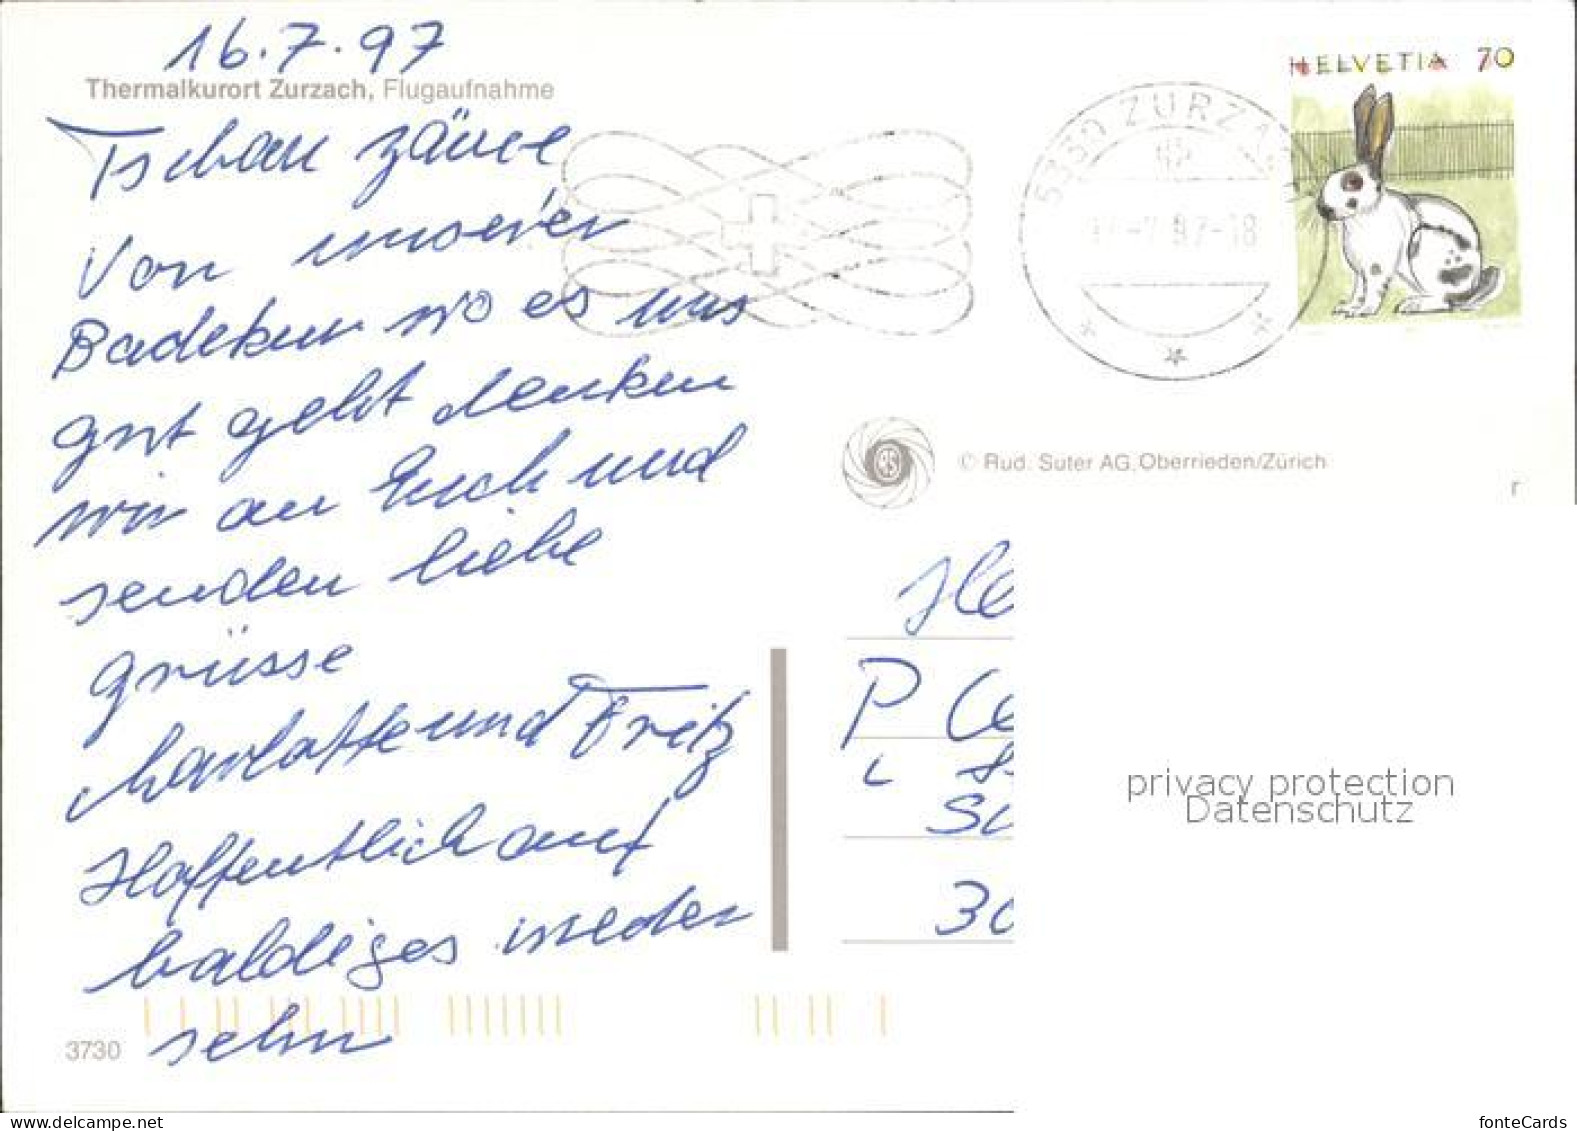 16.7.97
Thermalkurort Zurzach, Flugaufnahme
Tschau zäme
Von unserer
Badekur wo es uns
gut geht denken
wir an Euch und
senden liebe
Grüsse
Charlotte und Fritz
Hoffentlich auf
baldiges wieder
sehn
3730
HELVETIA 70
5330 ZURZA
-18
© Rud. Suter AG, Oberrieden/Zürich
r
P
30
privacy protection
Datenschutz
fonteCards